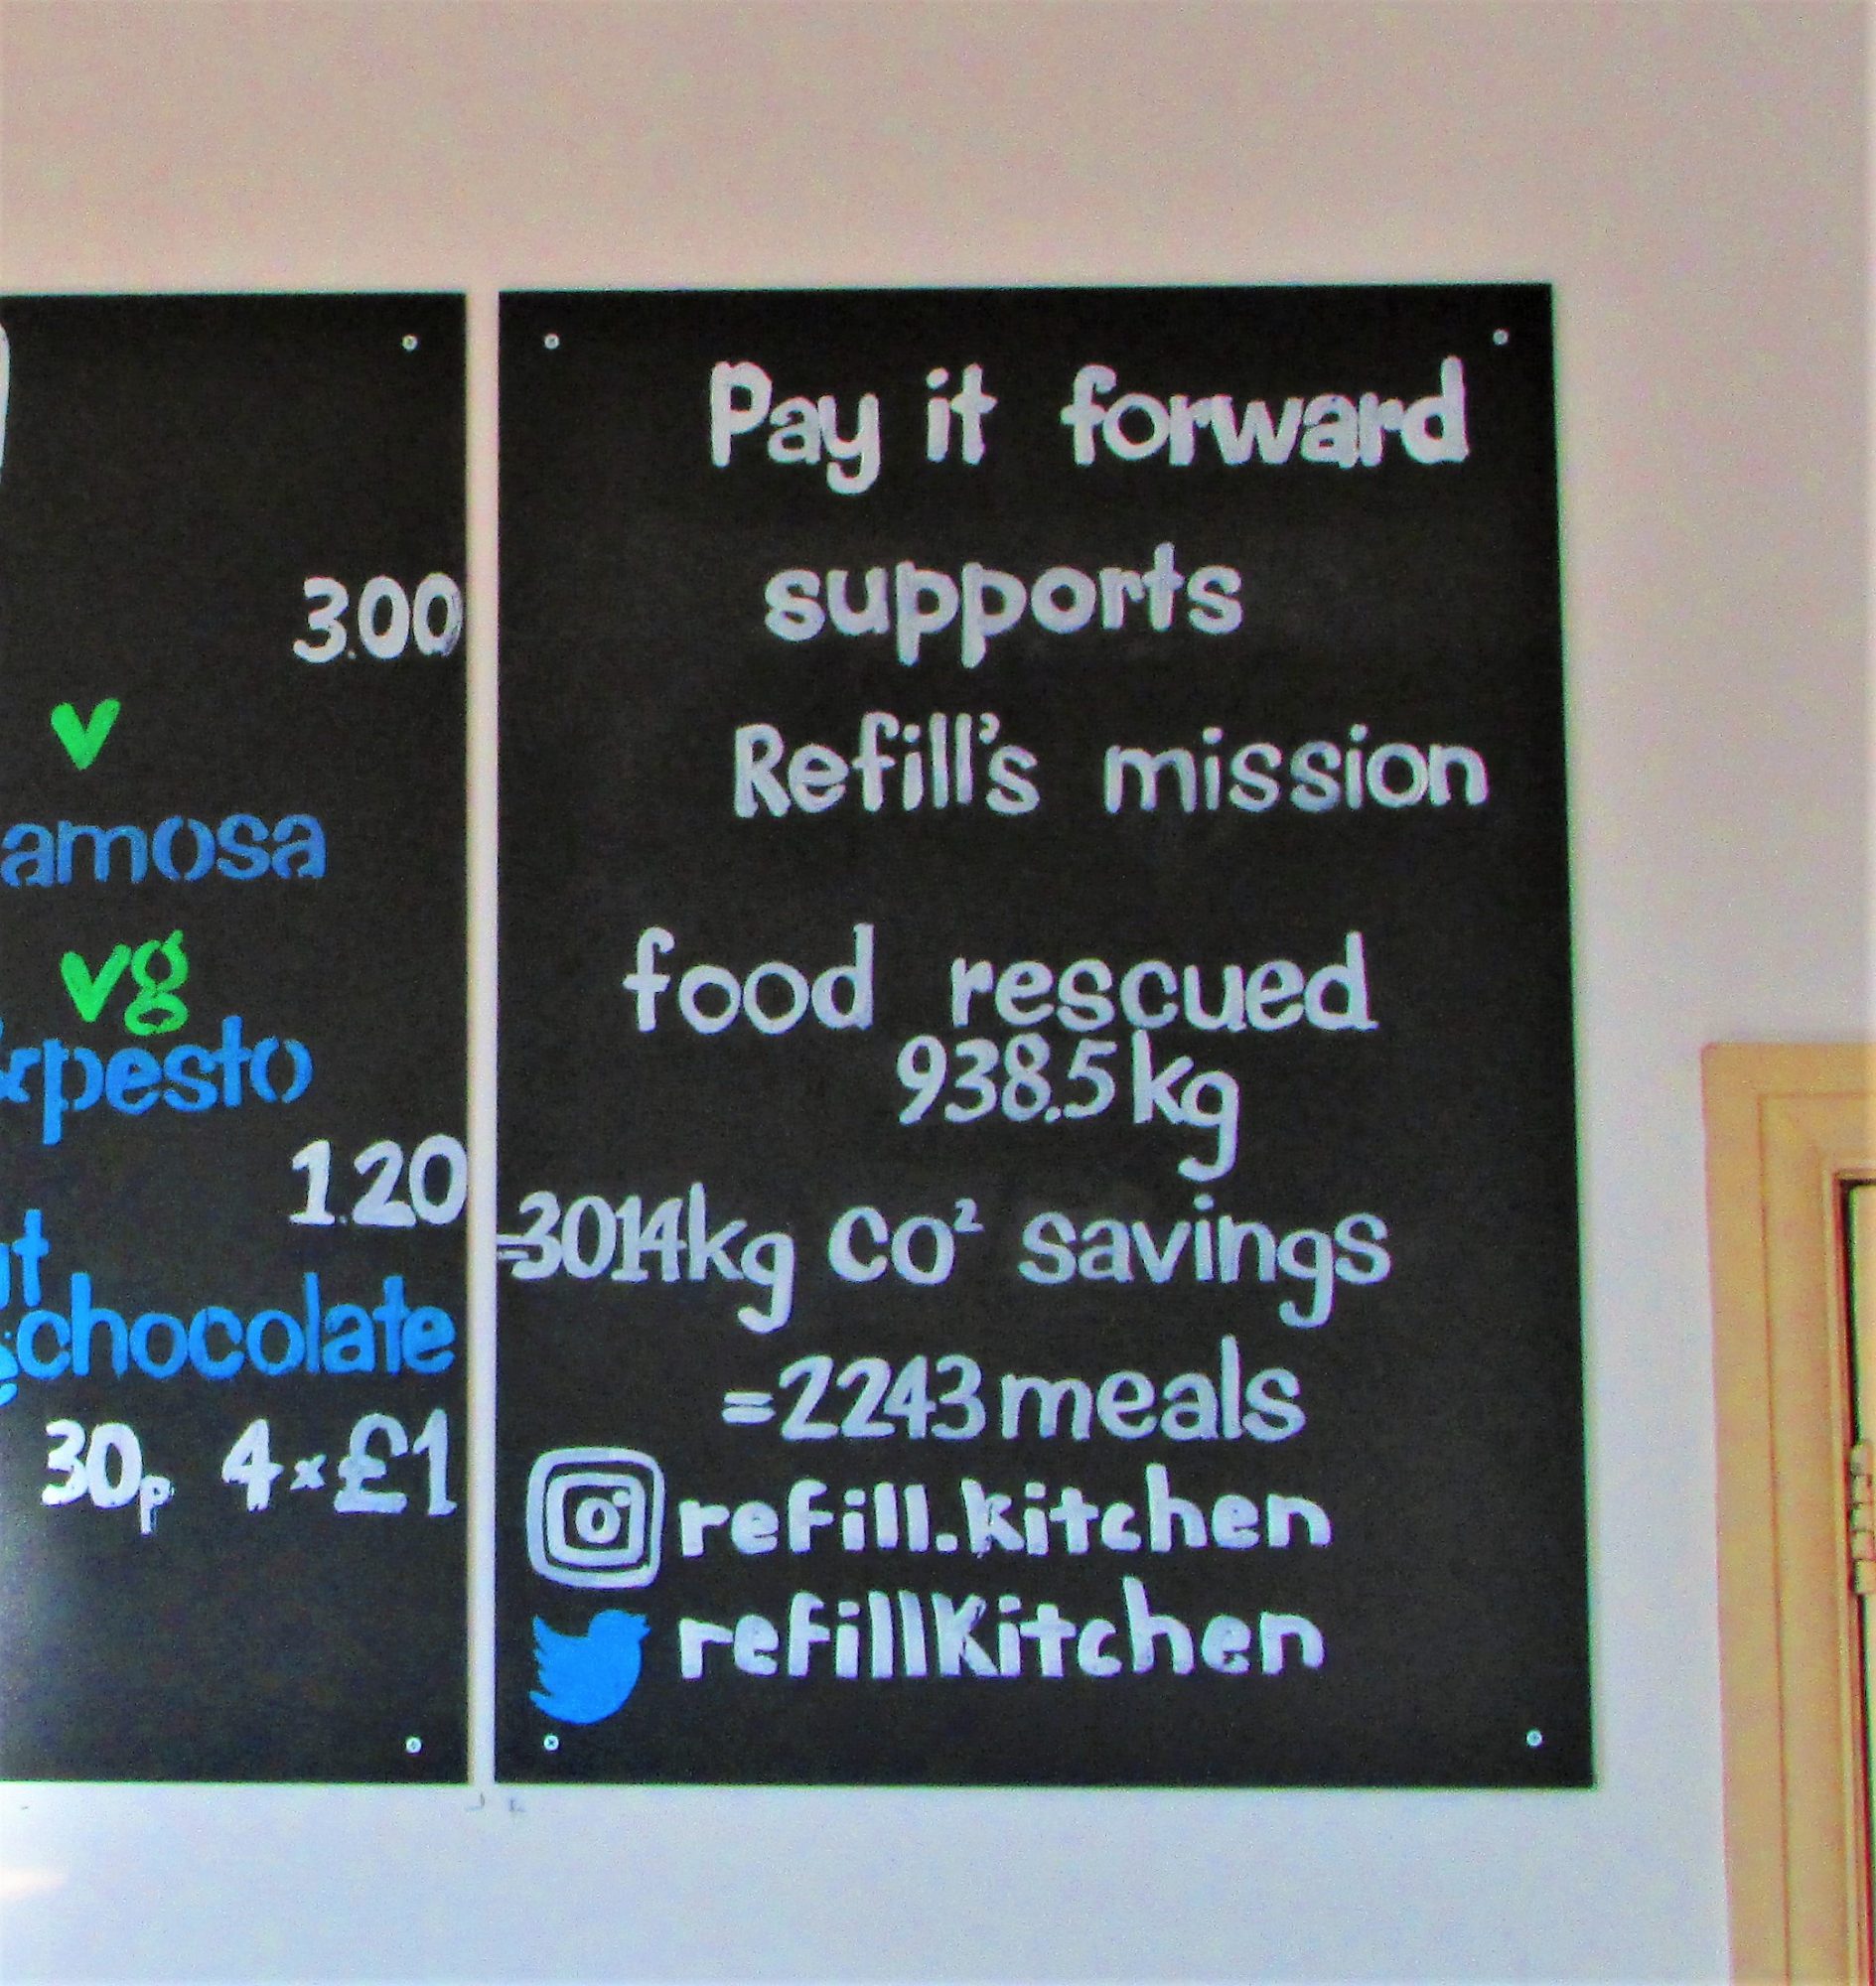 3.00
v
amosa
vg
&pesto
1.20
chocolate
30p 4x£1
Pay it forward
supports
Refill's mission
food rescued
938.5kg
=3014kg CO² savings
=2243meals
refill.kitchen
refillKitchen